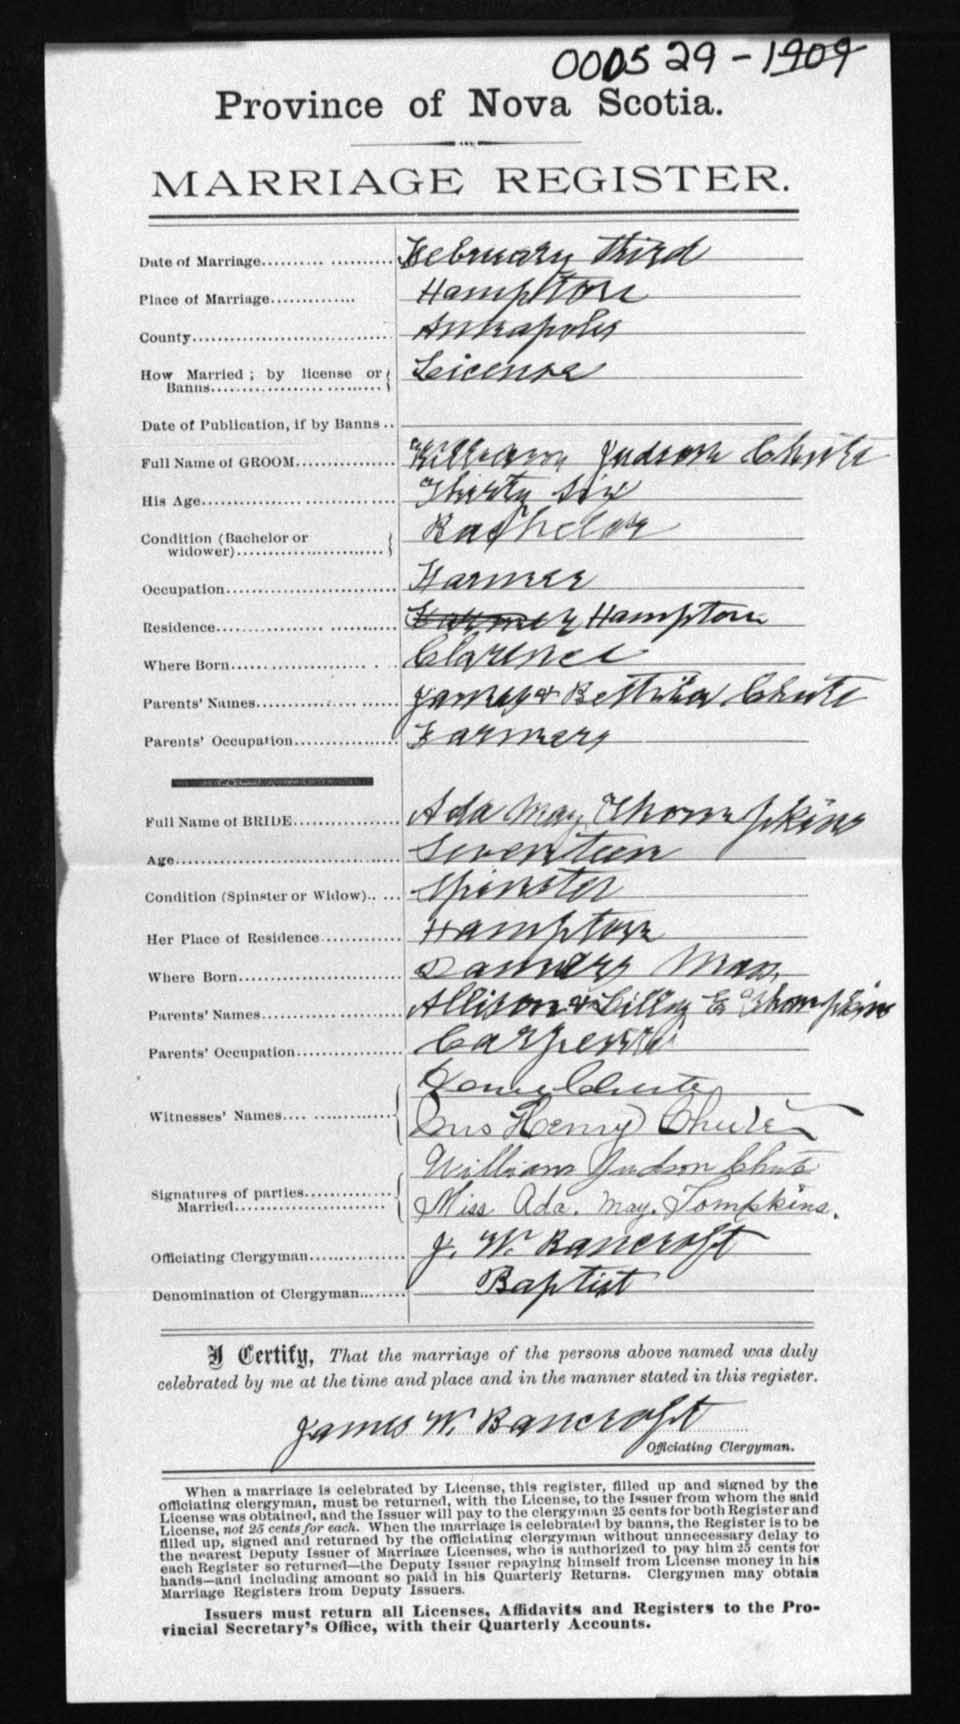 000529-1909
Province of Nova Scotia.
MARRIAGE REGISTER.
Date of Marriage.......... February third
Place of Marriage.............. Hampton
County.............................. Annapolis
How Married ; by license or License
Banns..............................
Date of Publication, if by Banns ..
Full Name of GROOM............... William Judson Chute
His Age............................. Thirty Six
Condition (Bachelor or Bachelor
widower)........................
Occupation.......................... Farmer
Residence.......................... Farmer Hampton
Where Born....................... Clarence
Parents' Names.................... James & Chute
Parents' Occupation............... Farmers
Full Name of BRIDE................ Ada May Thompkins
Age.................................... Seventeen
Condition (Spinster or Widow)..... Spinster
Her Place of Residence............ Hampton
Where Born......................... Danvers Mass
Parents' Names..................... Allison & E Thompkins
Parents' Occupation............... Carpenter
Chute
Witnesses' Names.................. Henry Chute
William Judson Chute
Signatures of parties..............
Married....................... Miss Ada. May. Tompkins.
Officiating Clergyman............. J. W. Bancroft
Denomination of Clergyman........ Baptist
I Certify, That the marriage of the persons above named was duly
celebrated by me at the time and place and in the manner stated in this register.
James W. Bancroft
Officiating Clergyman.
When a marriage is celebrated by License, this register, filled up and signed by the
officiating clergyman, must be returned, with the License, to the Issuer from whom the said
License was obtained, and the Issuer will pay to the clergyman 25 cents for both Register and
License, not 25 cents for each. When the marriage is celebrated by banns, the Register is to be
filled up, signed and returned by the officiating clergyman without unnecessary delay to
the nearest Deputy Issuer of Marriage Licenses, who is authorized to pay him 25 cents for
each Register so returned—the Deputy Issuer repaying himself from License money in his
hands—and including amount so paid in his Quarterly Returns. Clergymen may obtain
Marriage Registers from Deputy Issuers.
Issuers must return all Licenses, Affidavits and Registers to the Pro-
vincial Secretary's Office, with their Quarterly Accounts.